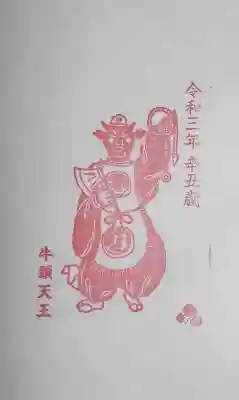 令和三年 辛丑歳
牛頭天王